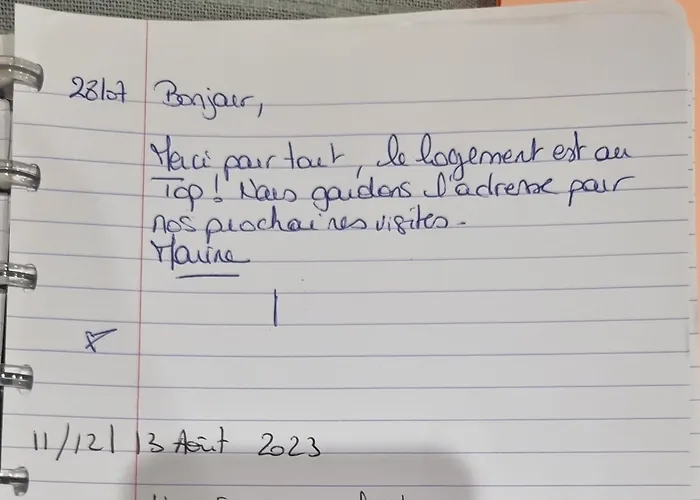 28/07 Bonjour,
Merci pour tout, le logement est au
Top! Nous gardons l'adresse pour
nos prochaines visites.
Marine
11/12/13 Août 2023